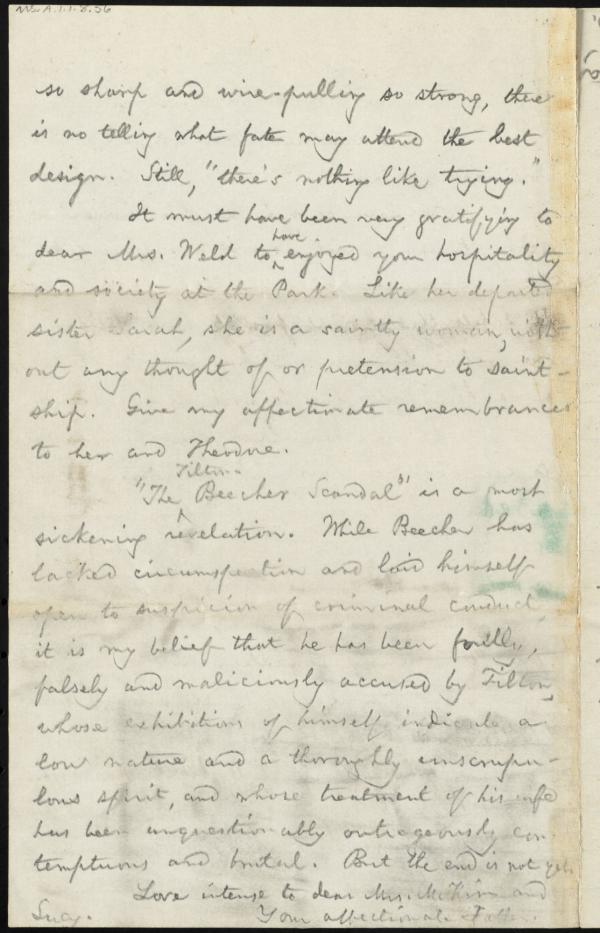 Ms. A. 1. 1. 8. 56
so sharp and wire-pulling so strong, there
is no telling what fate may attend the best
design. Still, "there's nothing like trying."
It must have been very gratifying to
dear Mrs. Weld to have enjoyed your hospitality
and society at the Park. Like her departed
sister Sarah, she is a saintly woman, with-
out any thought of or pretension to saint-
ship. Give my affectionate remembrances
to her and Theodore.
"The Tilton-Beecher Scandal" is a most
sickening revelation. While Beecher has
lacked circumspection and laid himself
open to suspicion of criminal conduct,
it is my belief that he has been foully,
falsely and maliciously accused by Tilton,
whose exhibitions of himself indicate a
low nature and a thoroughly unscrupu-
lous spirit, and whose treatment of his wife
has been unquestionably outrageously con-
temptuous and brutal. But the end is not yet.
Love intense to dear Mrs. McKim and
Lucy. Your affectionate Father.